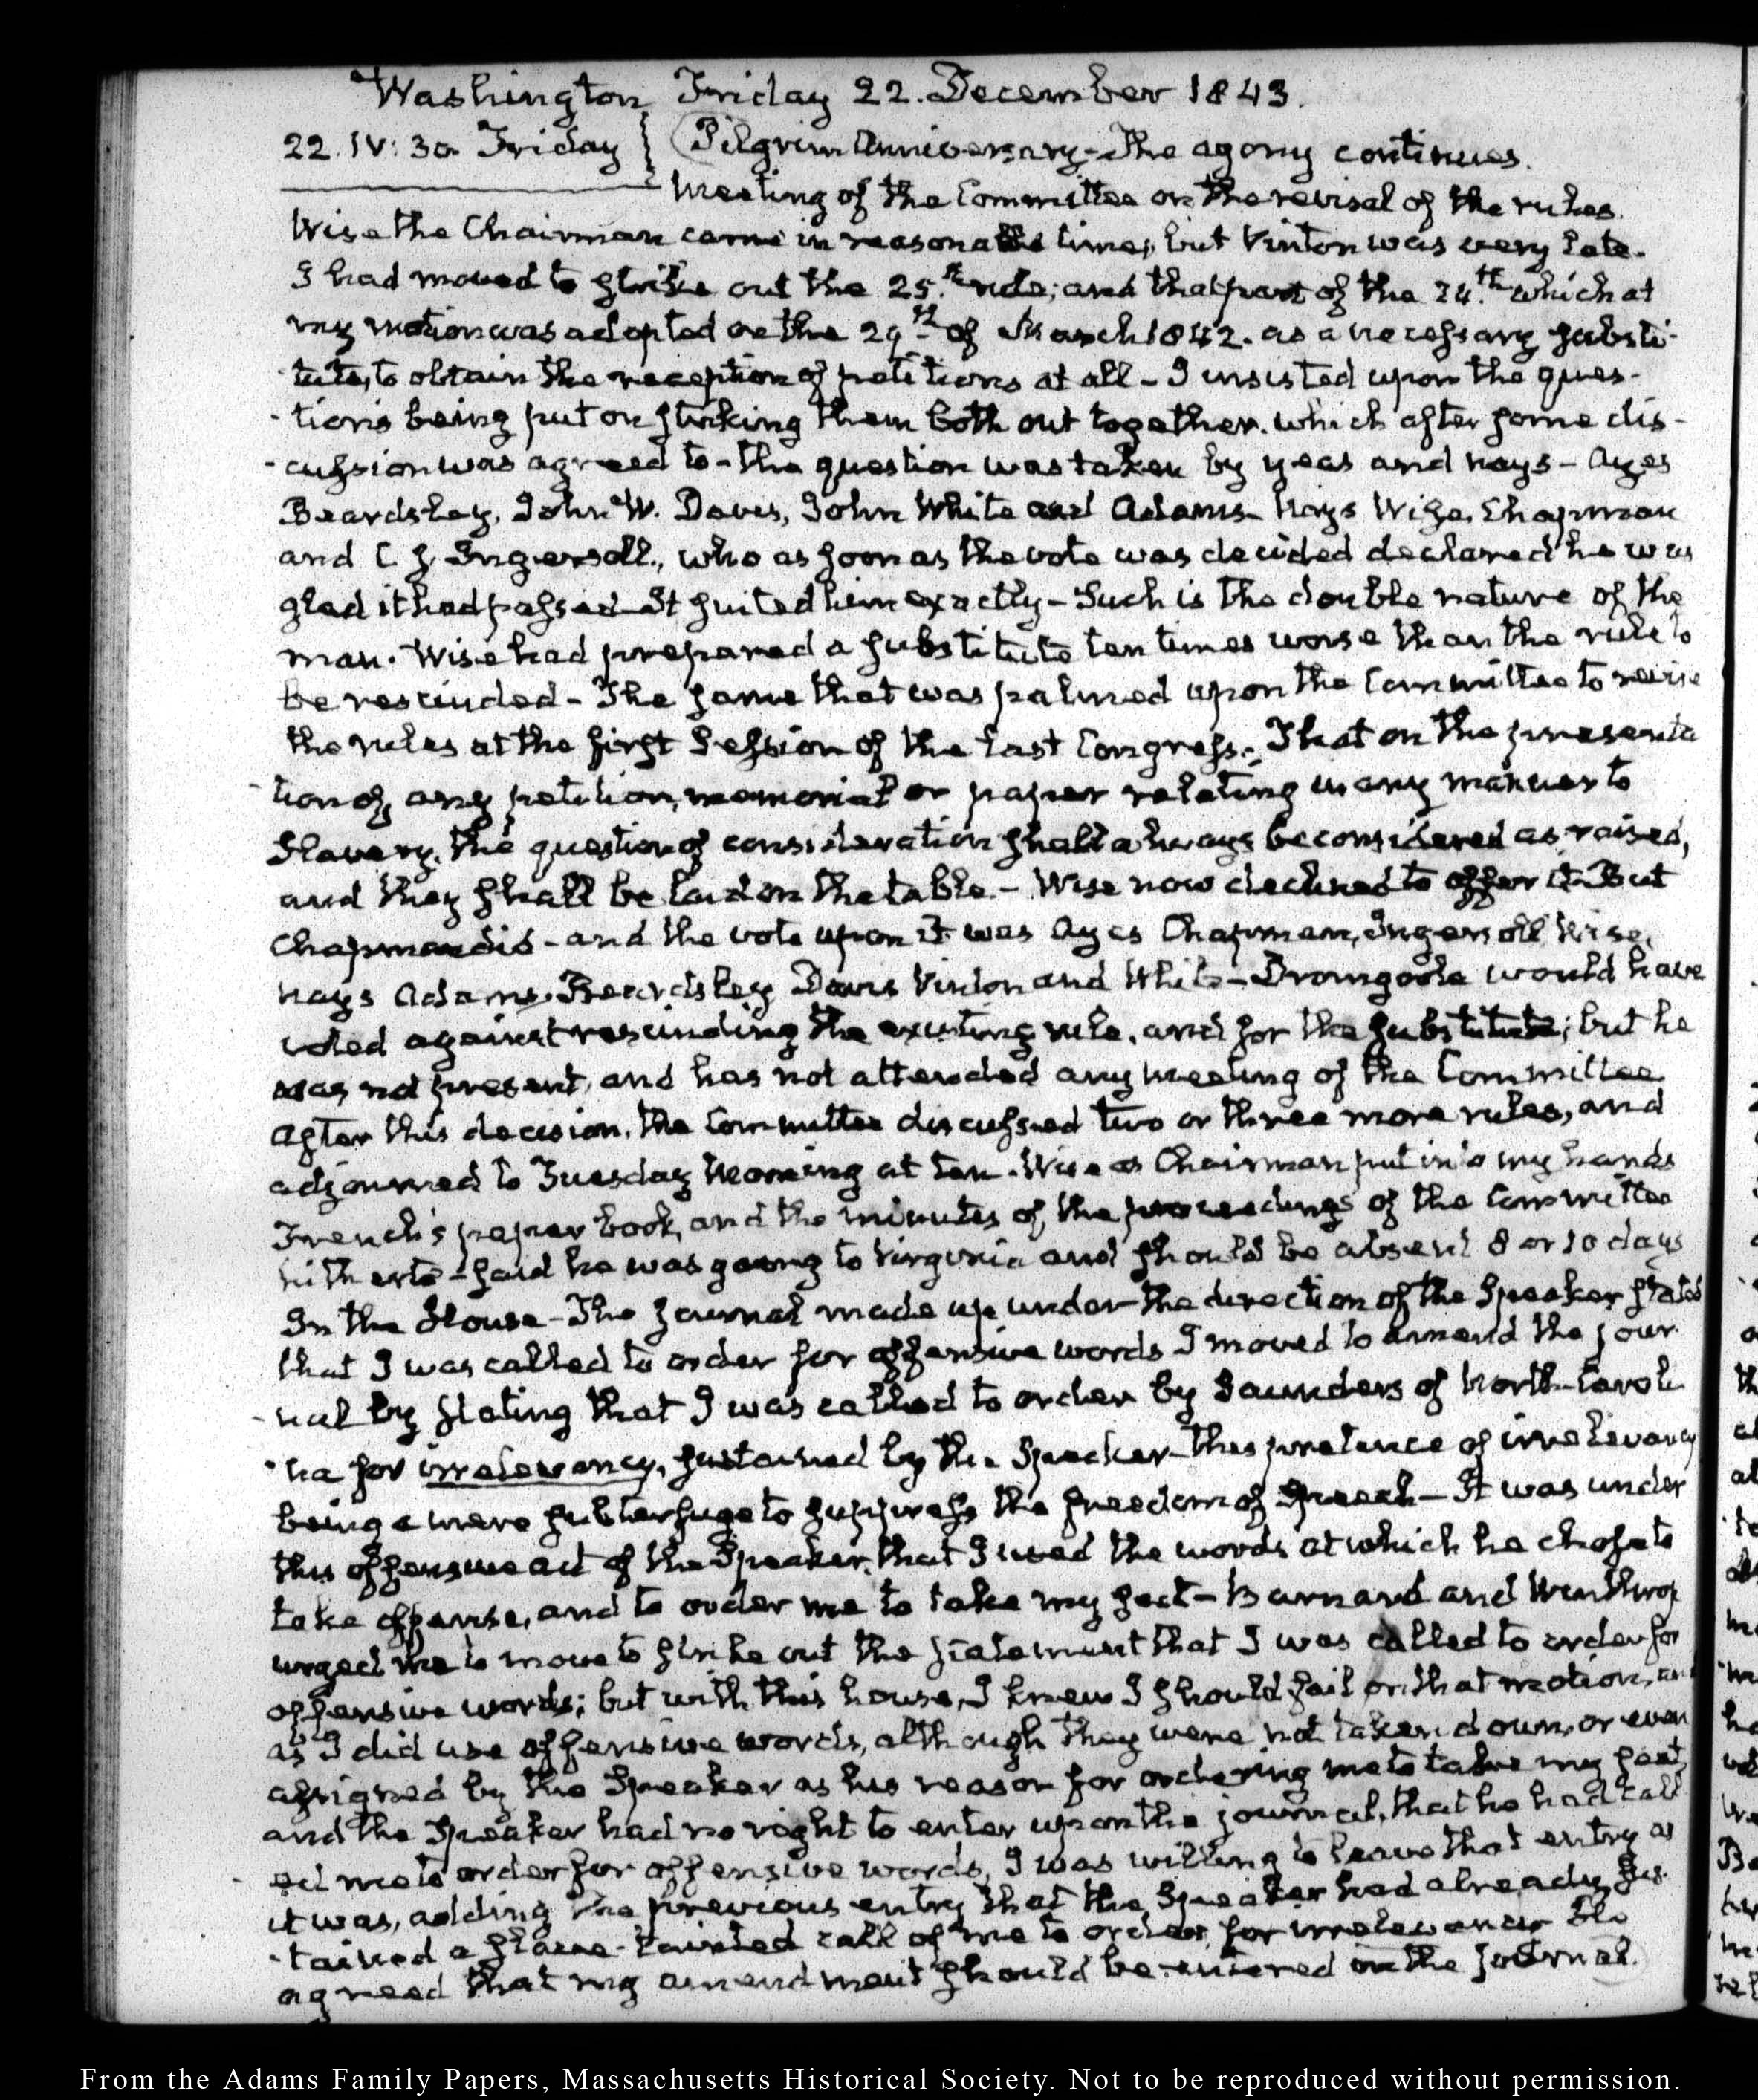 Washington Friday 22. December 1843.
22. IV: 30. Friday } Pilgrim Anniversary - The agony continues.
Meeting of the Committee on the revisal of the rules.
Wise the Chairman came in reasonable time, but Vinton was very late.
I had moved to strike out the 25.th rule; and that part of the 24.th which at
my motion was adopted on the 29th of March 1842. as a necessary substi-
tute, to obtain the reception of petitions at all - I insisted upon the ques-
-tions being put on striking them both out together. which after some dis-
-cussion was agreed to - the question was taken by yeas and nays - Ayes
Beardsley, John W. Davis, John White and Adams - Nays Wise, Chapman
and C J. Ingersoll., who as soon as the vote was decided declared he was
glad it had passed - It suited him exactly - Such is the double nature of the
man. Wise had prepared a substitute ten times worse than the rule to
be rescinded - The same that was palmed upon the Committee to revise
the rules at the first Session of the last Congress. That on the presenta
-tion of, any petition, memorial or paper relating in any manner to
Slavery, the question of consideration shall always be considered as raised,
and they shall be laid on the table. - Wise now declined to offer it - But
Chapman did - and the vote upon it was Ayes Chapman, Ingersoll, Wise,
Nays Adams, Beardsley Davis Vinton and White - Dromgoole would have
voted against rescinding the existing rule, and for the substitute; but he
was not present, and has not attended any meeting of the Committee
After this decision, the Committee discussed two or three more rules, and
adjourned to Tuesday Morning at ten. Wise as Chairman put into my hands
French's paper book, and the minutes of, the proceedings of the Committee
hitherto - said he was going to Virginia and should be absent 8 or 10 days
In the House - The Journal made up under the direction of the Speaker stated
that I was called to order for offensive words I moved to amend the jour
-nal by stating that I was called to order by Saunders of North-Caroli
-na for irrelevancy, sustained by the Speaker - this pretence of irrelevancy
being a mere subterfuge to suppress the freedom of Speech - It was under
this offensive act of the Speaker, that I used the words at which he chose to
take offense, and to order me to take my seat - Barnard and Winthrop
urged me to move to strike out the statement that I was called to order for
offensive words; but with this house, I knew I should fail on that motion, and
as I did use offensive words, although they were not taken down, or even
assigned by the Speaker as his reason for ordering me to take my seat,
and the Speaker had no right to enter upon the journal, that he had call
-ed me to order for offensive words, I was willing to leave that entry as
it was, adding the previous entry that the Speaker had already sus
-tained a slave-tainted call of me to order, for irrelevancy
agreed that my amendment should be entered on the Journal.
From the Adams Family Papers, Massachusetts Historical Society. Not to be reproduced without permission.